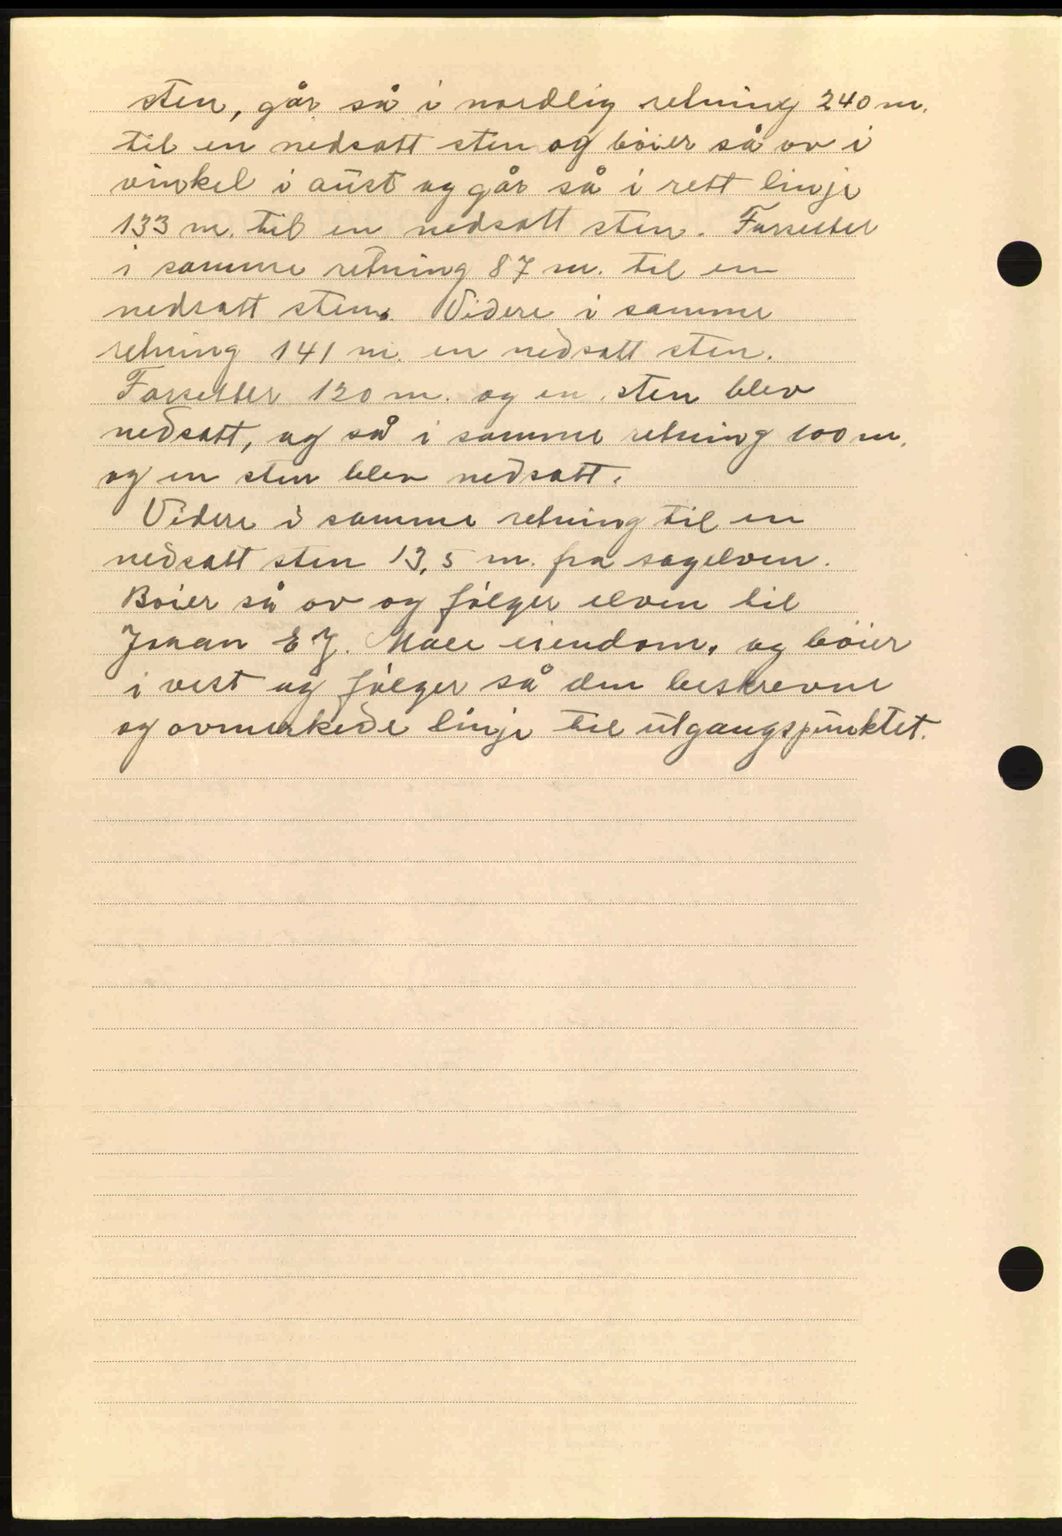 sten, går så i nordlig retning 240 m.
til en nedsatt sten og böier så av i
vinkel i aust og går så i rett linje
133 m. til en nedsatt sten. Forsetter
i samme retning 87 m. til en
nedsatt sten. Videre i samme
retning 141 m. en nedsatt sten.
Forsetter 120 m. og en sten blev
nedsatt, og så i samme retning 100 m.
og en sten blev nedsatt.
Videre i samme retning til en
nedsatt sten 13,5 m. fra sagelven.
Böier så av og fölger elven til
Johan E J. Moee eiendom, og böier
i vest og fölger så den beskrevne
og avmerkede linje til utgangspunktet.